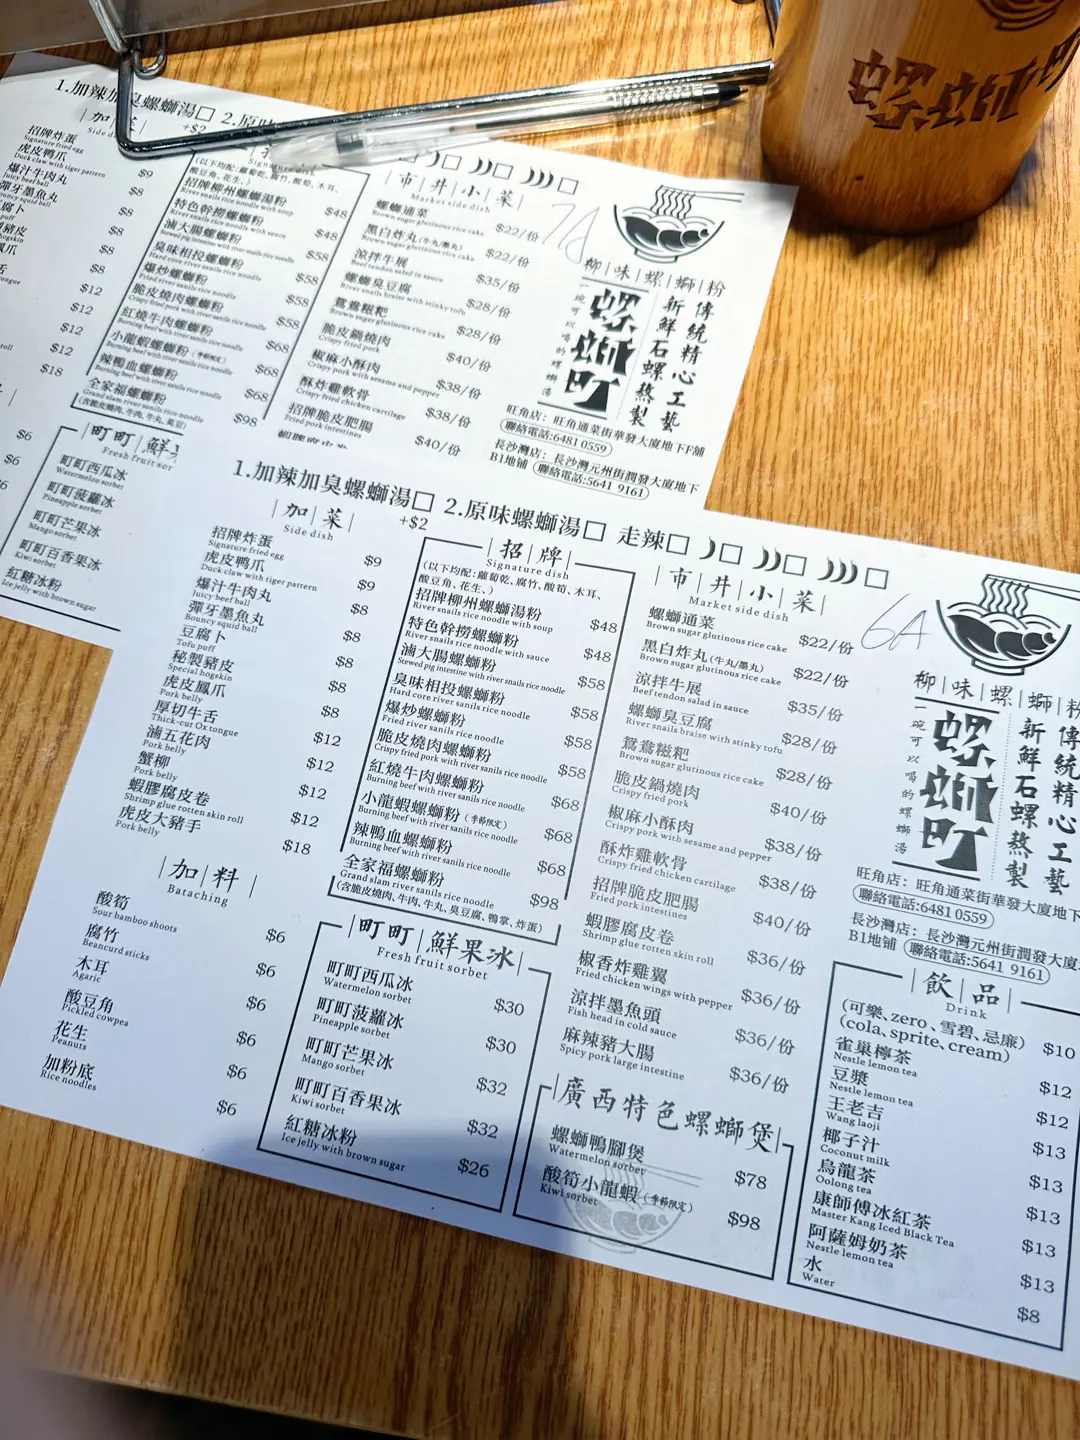 1.加辣加臭螺螄湯□ 2.原味
+$2
加
Side d
招牌炸蛋
Signature fried egg
$9
虎皮鴨爪
Duck claw with tiger pattern
$8
爆汁牛肉丸
Juicy beef ball
$8
彈牙墨魚丸
ouncy squid ball
$8
腐卜
puff
$8
豬皮
hogskin
$8
鳳爪
$12
舌
tongue
$12
$12
roll
$18
$6
$6
Signature dish
(以下均配:蘿蔔乾、腐竹、酸筍、木耳、
酸豆角、花生、)
招牌柳州螺螄湯粉
River snails rice noodle with soup
$48
特色幹撈螺螄粉
River snails rice noodle with sauce
$48
滷大腸螺螄粉
$58
臭味相投螺螄粉
Hard core river snails rice noodle
$58
爆炒螺螄粉
Fried river snails rice noodle
$58
脆皮燒肉螺螄粉
Crispy fried pork with river snails rice noodle
$68
紅燒牛肉螺螄粉
Burning beef with river snails rice noodle
$68
小龍蝦螺螄粉(季節限定)
Burning beef with river snails rice noodle
辣鴨血螺螄粉
Burning beef with river snails rice noodle
全家福螺螄粉
Grand slam river snails rice noodle
$98
町町鮮
Fresh fruit sor
町町西瓜冰
Watermelon sorbet
町町菠蘿冰
Pineapple sorbet
町町芒果冰
Mango sorbet
町町百香果冰
Kiwi sorbet
紅糖冰粉
Ice jelly with brown sugar
市井小菜
Market side dish
螺螄通菜
Brown sugar glutinous rice cake
$22/份
黑白炸丸(牛丸/墨丸)
Brown sugar glutinous rice cake
$22/份
涼拌牛展
Beef tendon salad in sauce
$35/份
螺螄臭豆腐
River snails braise with stinky tofu
$28/份
鴛鴦糍粑
Brown sugar glutinous rice cake
$28/份
脆皮鍋燒肉
Crispy fried pork
$40/份
椒麻小酥肉
Crispy pork with sesame and pepper
$38/份
酥炸雞軟骨
Crispy fried chicken cartilage
$38/份
招牌脆皮肥腸
Fried pork intestines
$40/份
7A
柳味螺螄粉
一碗可以喝的螺螄湯
螺螄町
新鮮石螺熬製
傳統精心工藝
旺角店：旺角通菜街華發大廈地下F舖
聯絡電話:6481 0559
長沙灣店：長沙灣元州街潤發大廈地下
B1地舖 聯絡電話:5641 9161
1.加辣加臭螺螄湯□ 2.原味螺螄湯□ 走辣□
+$2
加菜
Side dish
招牌炸蛋
Signature fried egg
$9
虎皮鴨爪
Duck claw with tiger pattern
$9
爆汁牛肉丸
Juicy beef ball
$8
彈牙墨魚丸
Bouncy squid ball
$8
豆腐卜
Tofu puff
$8
秘製豬皮
Special hogskin
$8
虎皮鳳爪
Pork belly
$8
厚切牛舌
Thick-cut Ox tongue
$12
滷五花肉
Pork belly
$12
蟹柳
Pork belly
$12
蝦膠腐皮卷
Shrimp glue rotten skin roll
$12
虎皮大豬手
Pork belly
$18
加料
Bataching
酸筍
Sour bamboo shoots
$6
腐竹
Beancurd sticks
$6
木耳
Agaric
$6
酸豆角
Pickled cowpea
$6
花生
Peanuts
$6
加粉底
Rice noodles
$6
招牌
Signature dish
(以下均配:蘿蔔乾、腐竹、酸筍、木耳、
酸豆角、花生、)
招牌柳州螺螄湯粉
River snails rice noodle with soup
$48
特色幹撈螺螄粉
River snails rice noodle with sauce
$48
滷大腸螺螄粉
Stewed pig intestine with river snails rice noodle
$58
臭味相投螺螄粉
Hard core river snails rice noodle
爆炒螺螄粉
Fried river snails rice noodle
$58
脆皮燒肉螺螄粉
Crispy fried pork with river snails rice noodle
$58
紅燒牛肉螺螄粉
Burning beef with river snails rice noodle
$68
小龍蝦螺螄粉(季節限定)
Burning beef with river snails rice noodle
$68
辣鴨血螺螄粉
Burning beef with river snails rice noodle
$68
全家福螺螄粉
Grand slam river snails rice noodle
$98
(含脆皮燒肉、牛肉、牛丸、臭豆腐、鴨掌、炸蛋)
町町鮮果冰
Fresh fruit sorbet
町町西瓜冰
Watermelon sorbet
$30
町町菠蘿冰
Pineapple sorbet
$30
町町芒果冰
Mango sorbet
$32
町町百香果冰
Kiwi sorbet
$32
紅糖冰粉
Ice jelly with brown sugar
$26
市井小菜
Market side dish
螺螄通菜
Brown sugar glutinous rice cake
$22/份
黑白炸丸(牛丸/墨丸)
Brown sugar glutinous rice cake
$22/份
涼拌牛展
Beef tendon salad in sauce
$35/份
螺螄臭豆腐
River snails braise with stinky tofu
$28/份
鴛鴦糍粑
Brown sugar glutinous rice cake
$28/份
脆皮鍋燒肉
Crispy fried pork
$40/份
椒麻小酥肉
Crispy pork with sesame and pepper
$38/份
酥炸雞軟骨
Crispy fried chicken cartilage
$38/份
招牌脆皮肥腸
Fried pork intestines
$40/份
蝦膠腐皮卷
Shrimp glue rotten skin roll
$36/份
椒香炸雞翼
Fried chicken wings with pepper
$36/份
涼拌墨魚頭
Fish head in cold sauce
$36/份
麻辣豬大腸
Spicy pork large intestine
$36/份
廣西特色螺螄煲
螺螄鴨腳煲
Watermelon sorbet
$78
酸筍小龍蝦(季節限定)
Kiwi sorbet
$98
6A
柳味螺螄粉
一碗可以喝的螺螄湯
螺螄町
新鮮石螺熬製
傳統精心工藝
旺角店：旺角通菜街華發大廈地下
聯絡電話:6481 0559
長沙灣店：長沙灣元州街潤發大廈
B1地舖 聯絡電話:5641 9161
飲品
Drink
(可樂、zero、雪碧、忌廉)
(cola、sprite、cream)
$10
雀巢檸茶
Nestle lemon tea
$12
豆漿
Nestle lemon tea
$12
王老吉
Wang laoji
$13
椰子汁
Coconut milk
$13
烏龍茶
Oolong tea
$13
康師傅冰紅茶
Master Kang Iced Black Tea
$13
阿薩姆奶茶
Nestle lemon tea
$13
水
Water
$8
螺螄町